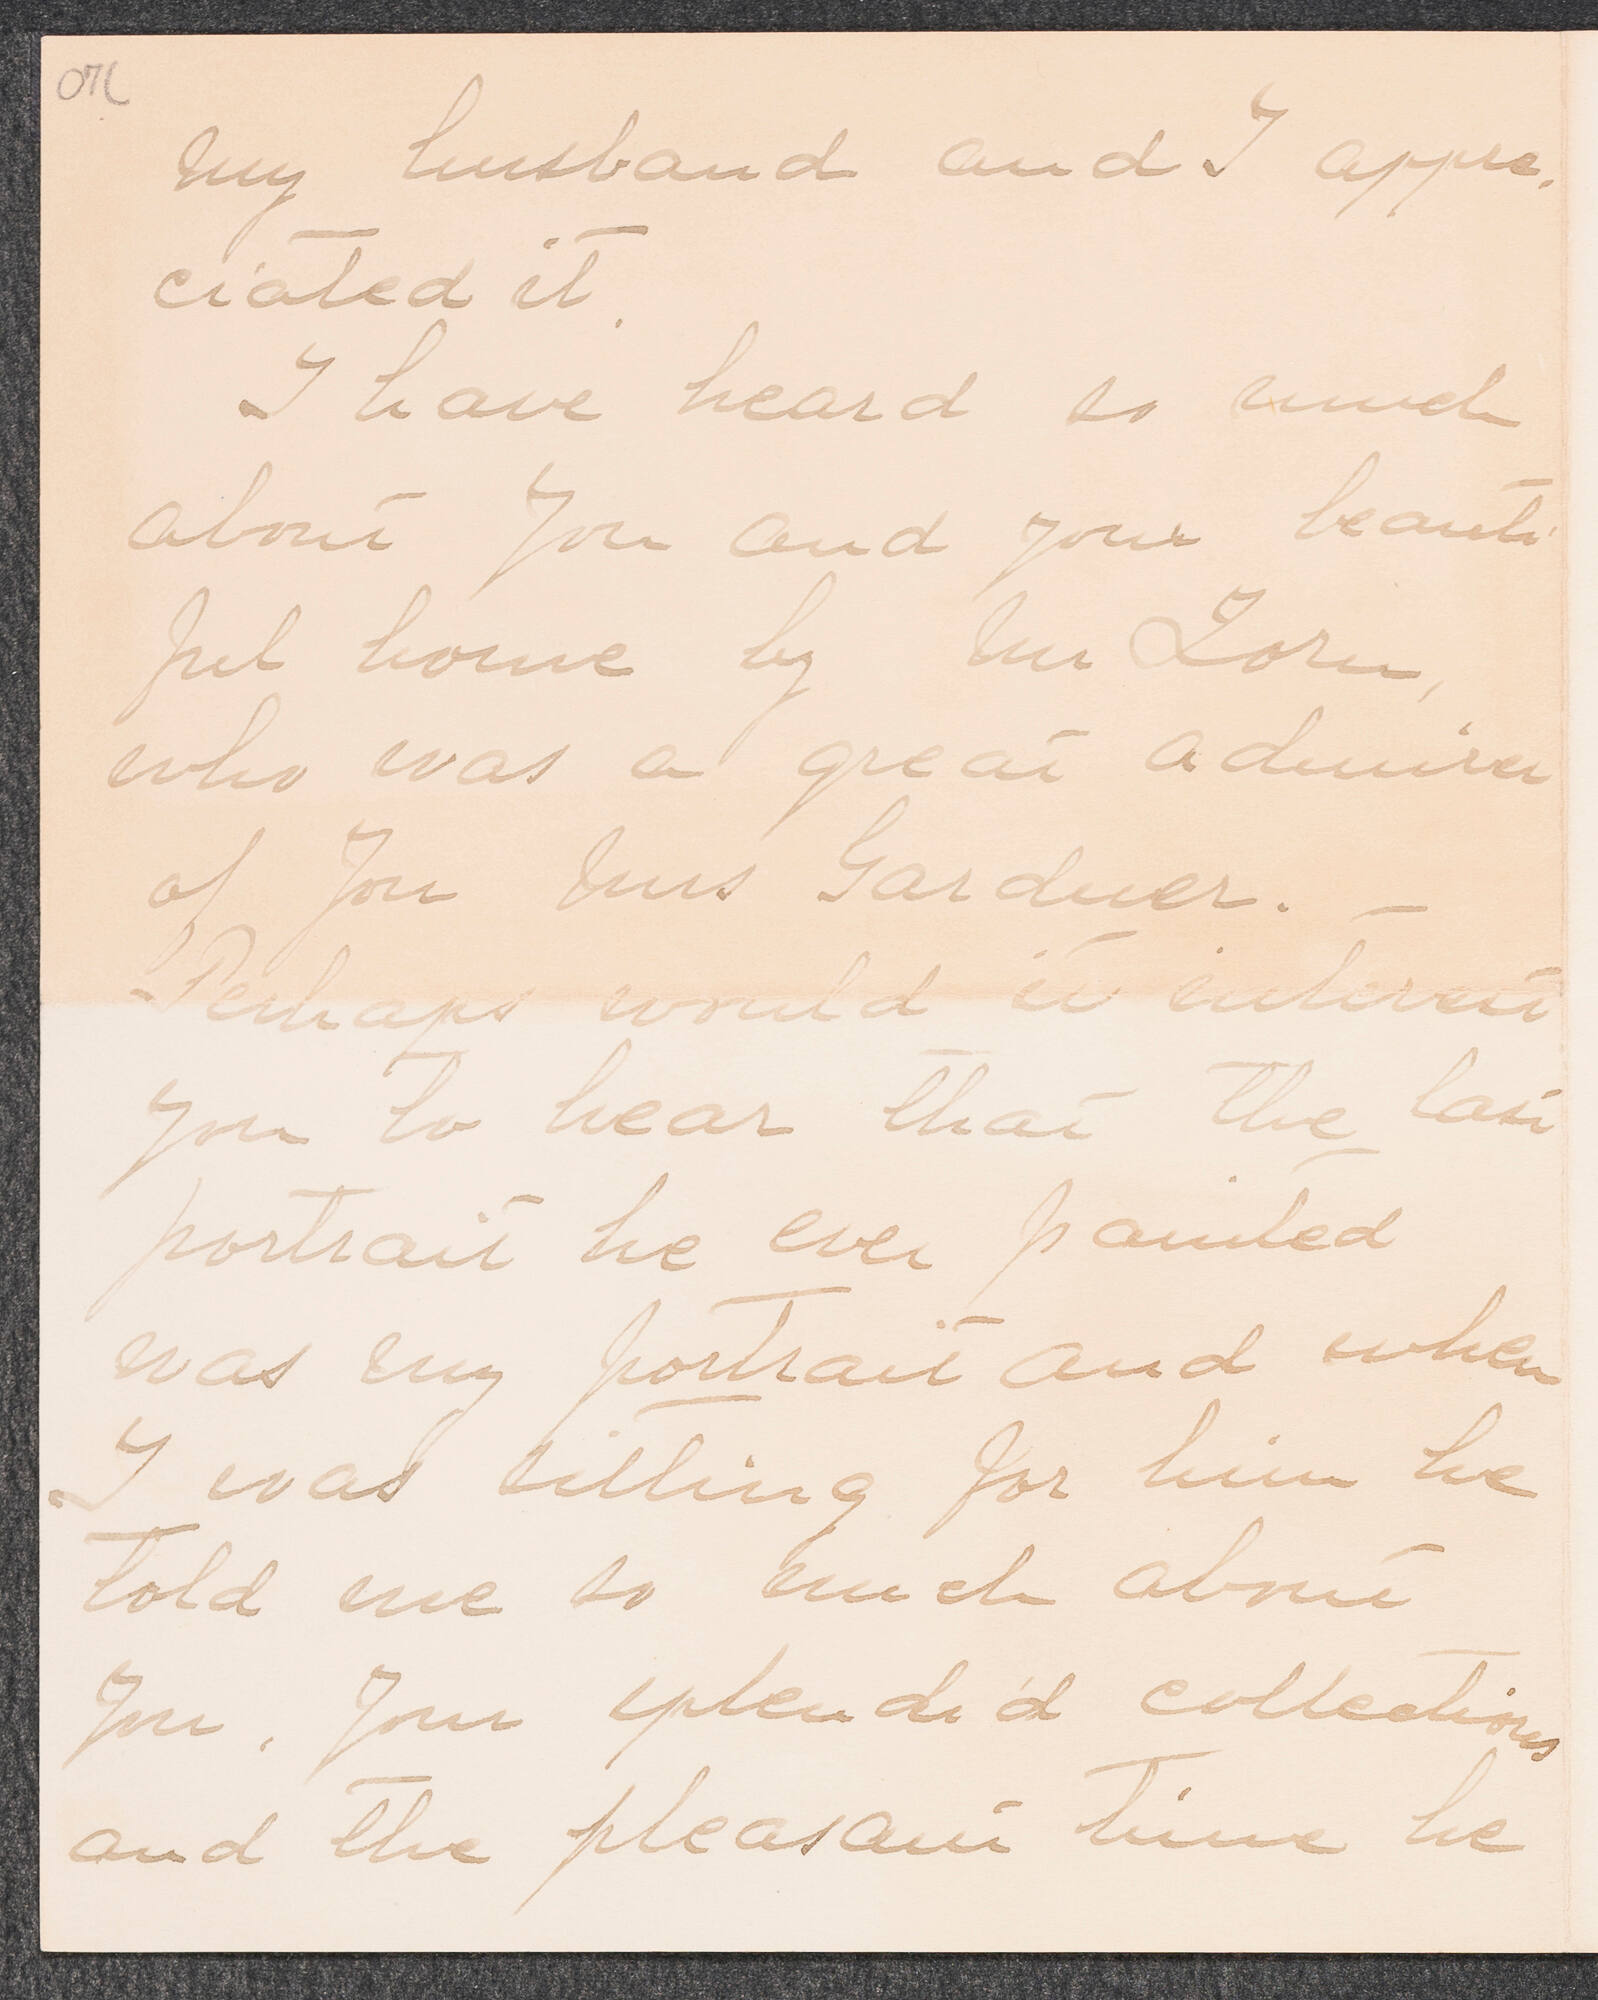 my husband and I appre.
ciated it.
I have heard so much
about you and your beauti
ful home by Mr Zorn,
who was a great admirer
of you Mrs Gardner.
Perhaps would it interest
you to hear that the last
portrait he ever painted
was my portrait and when
I was sitting for him he
told me so much about
you, your splendid collections
and the pleasant time he